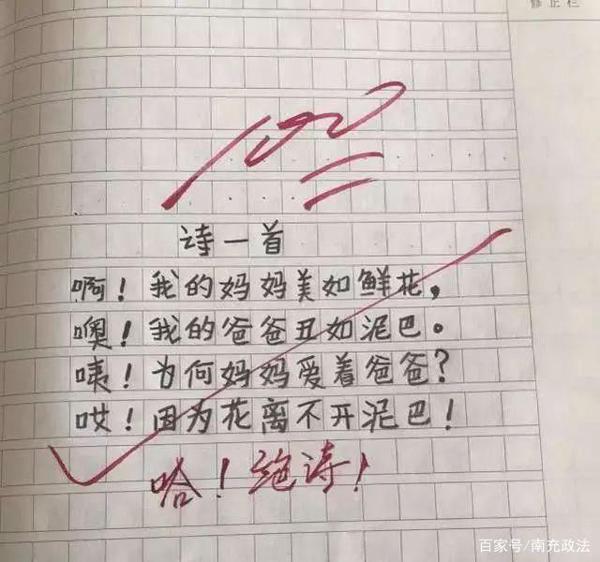 修正栏
100
诗一首
啊！我的妈妈美如鲜花，
噢！我的爸爸丑如泥巴。
咦！为何妈妈爱着爸爸？
哎！因为花离不开泥巴！
哈！绝诗！
百家号/南充政法